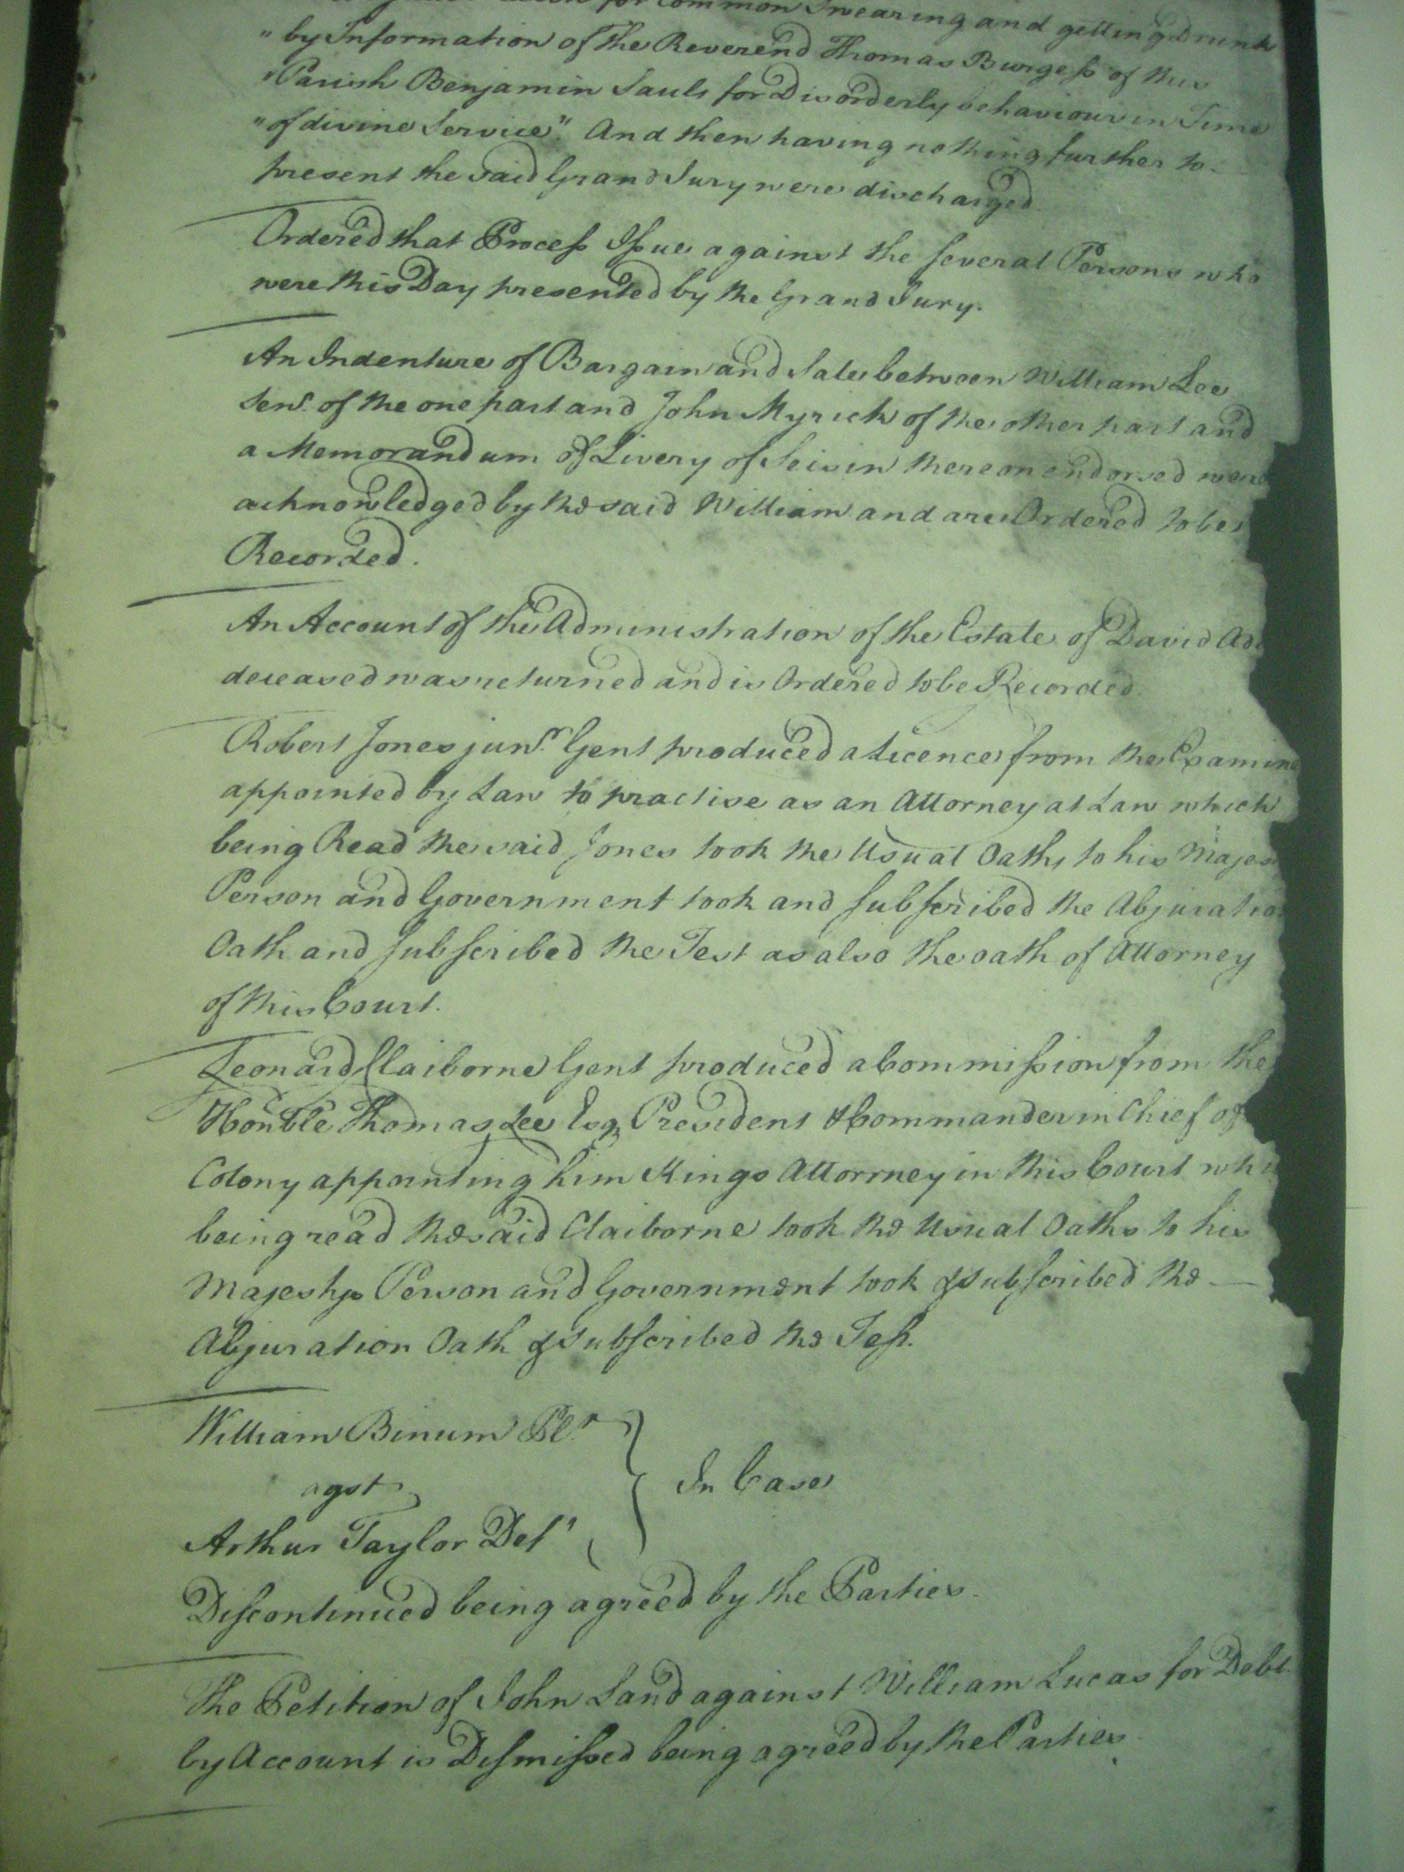 for Common Swearing and getting Drunk
"by Information of the Reverend Thomas Burgess of this
"Parish Benjamin Sauls for Disorderly behaviour in Time
"of divine Service" And then having nothing further to
present the said Grand Jury were discharged
Ordered that Process Issue against the several Persons who
were this Day presented by the Grand Jury.
An Indenture of Bargain and Sale between William Lee
Senr. of the one part and John Myrick of the other part and
a Memorandum of Livery of Seisin thereon endorsed were
acknowledged by the said William and are Ordered to be
Recorded.
An Account of the Administration of the Estate of David
deceased was returned and is Ordered to be Recorded.
Robert Jones junr. Gent produced a Licence from the Examine
appointed by Law to practise as an Attorney at Law which
being Read the said Jones took the Usual Oaths to his Majes
Person and Government took and subscribed the Abjuratio
Oath and subscribed the Test as also the oath of Attorney
of this Court.
Leonard Claiborne Gent produced a Commission from the
Honble Thomas Lee Esq President & Commander in Chief of
Colony appointing him Kings Attorney in this Court whi
being read the said Claiborne took the Usual Oaths to his
Majestys Person and Government took & subscribed the
Abjuration Oath & subscribed the Test.
William Binum Plt
agst
In Case
Arthur Taylor Deft
Discontinued being agreed by the Parties.
The Petition of John Land against William Lucas for Debt
by Account is Dismissed being agreed by the Parties.